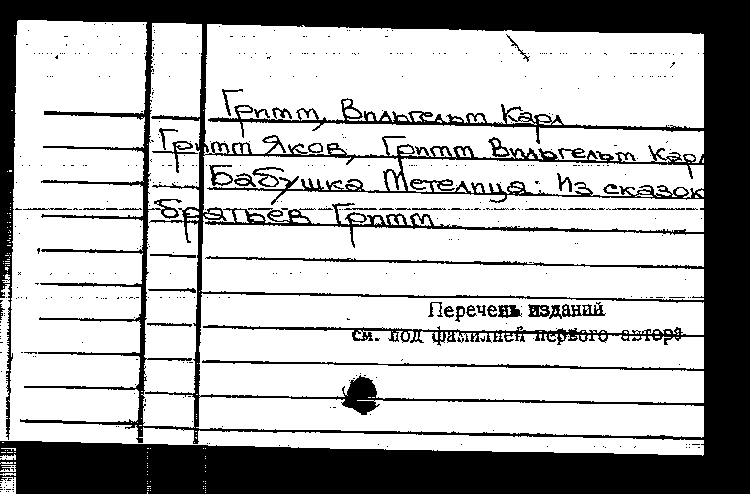 Гримм, Вильгельм Карл
Гримм Яков, Гримм Вильгельм Карл
Бабушка Метелица: Из сказок
братьев Гримм.
Перечень изданий
см. под фамилией первого автора